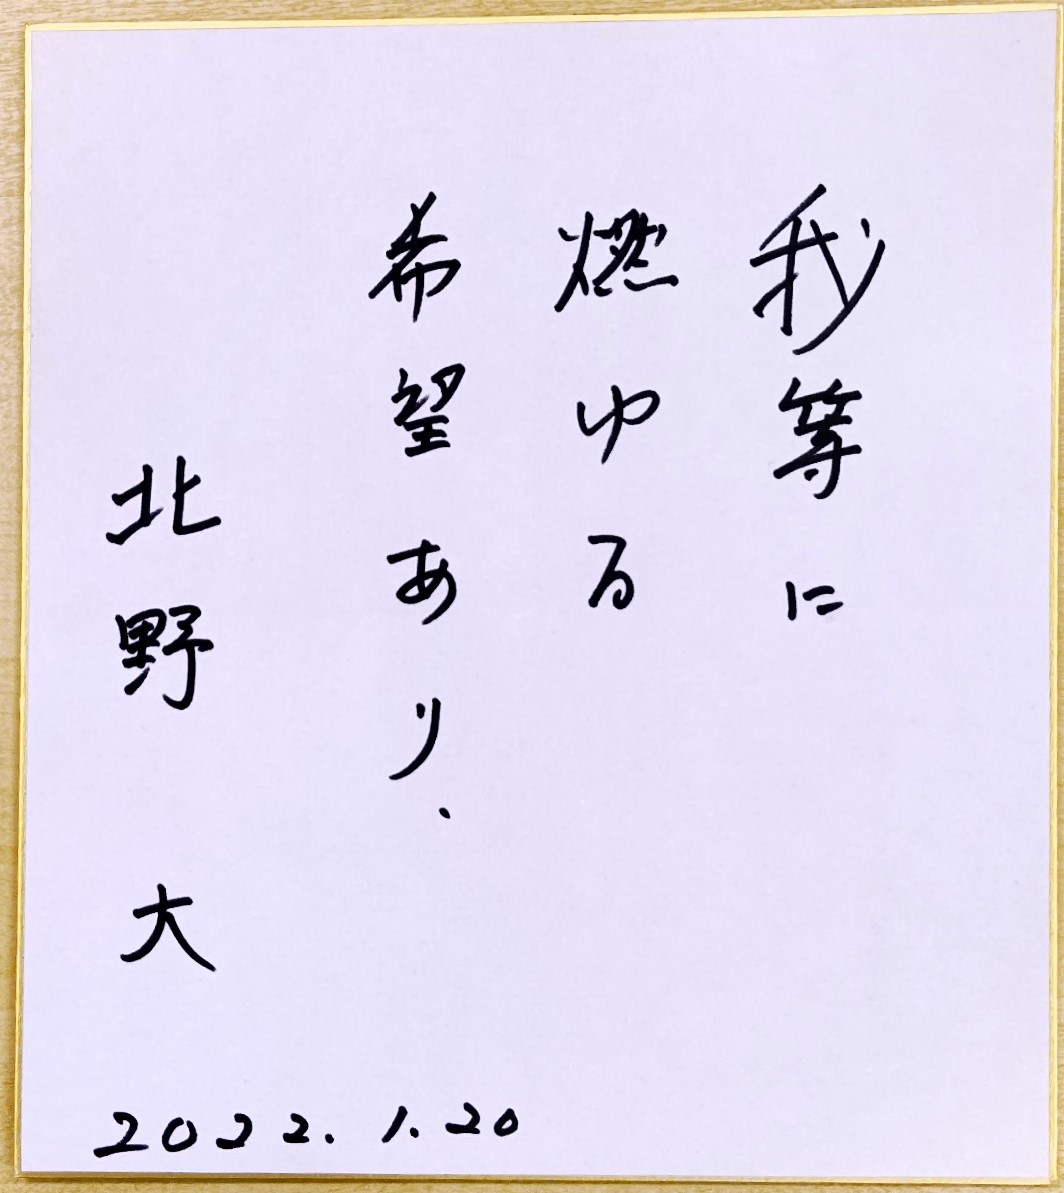 我等に
燃ゆる
希望あり.
北野 大
2022.1.20